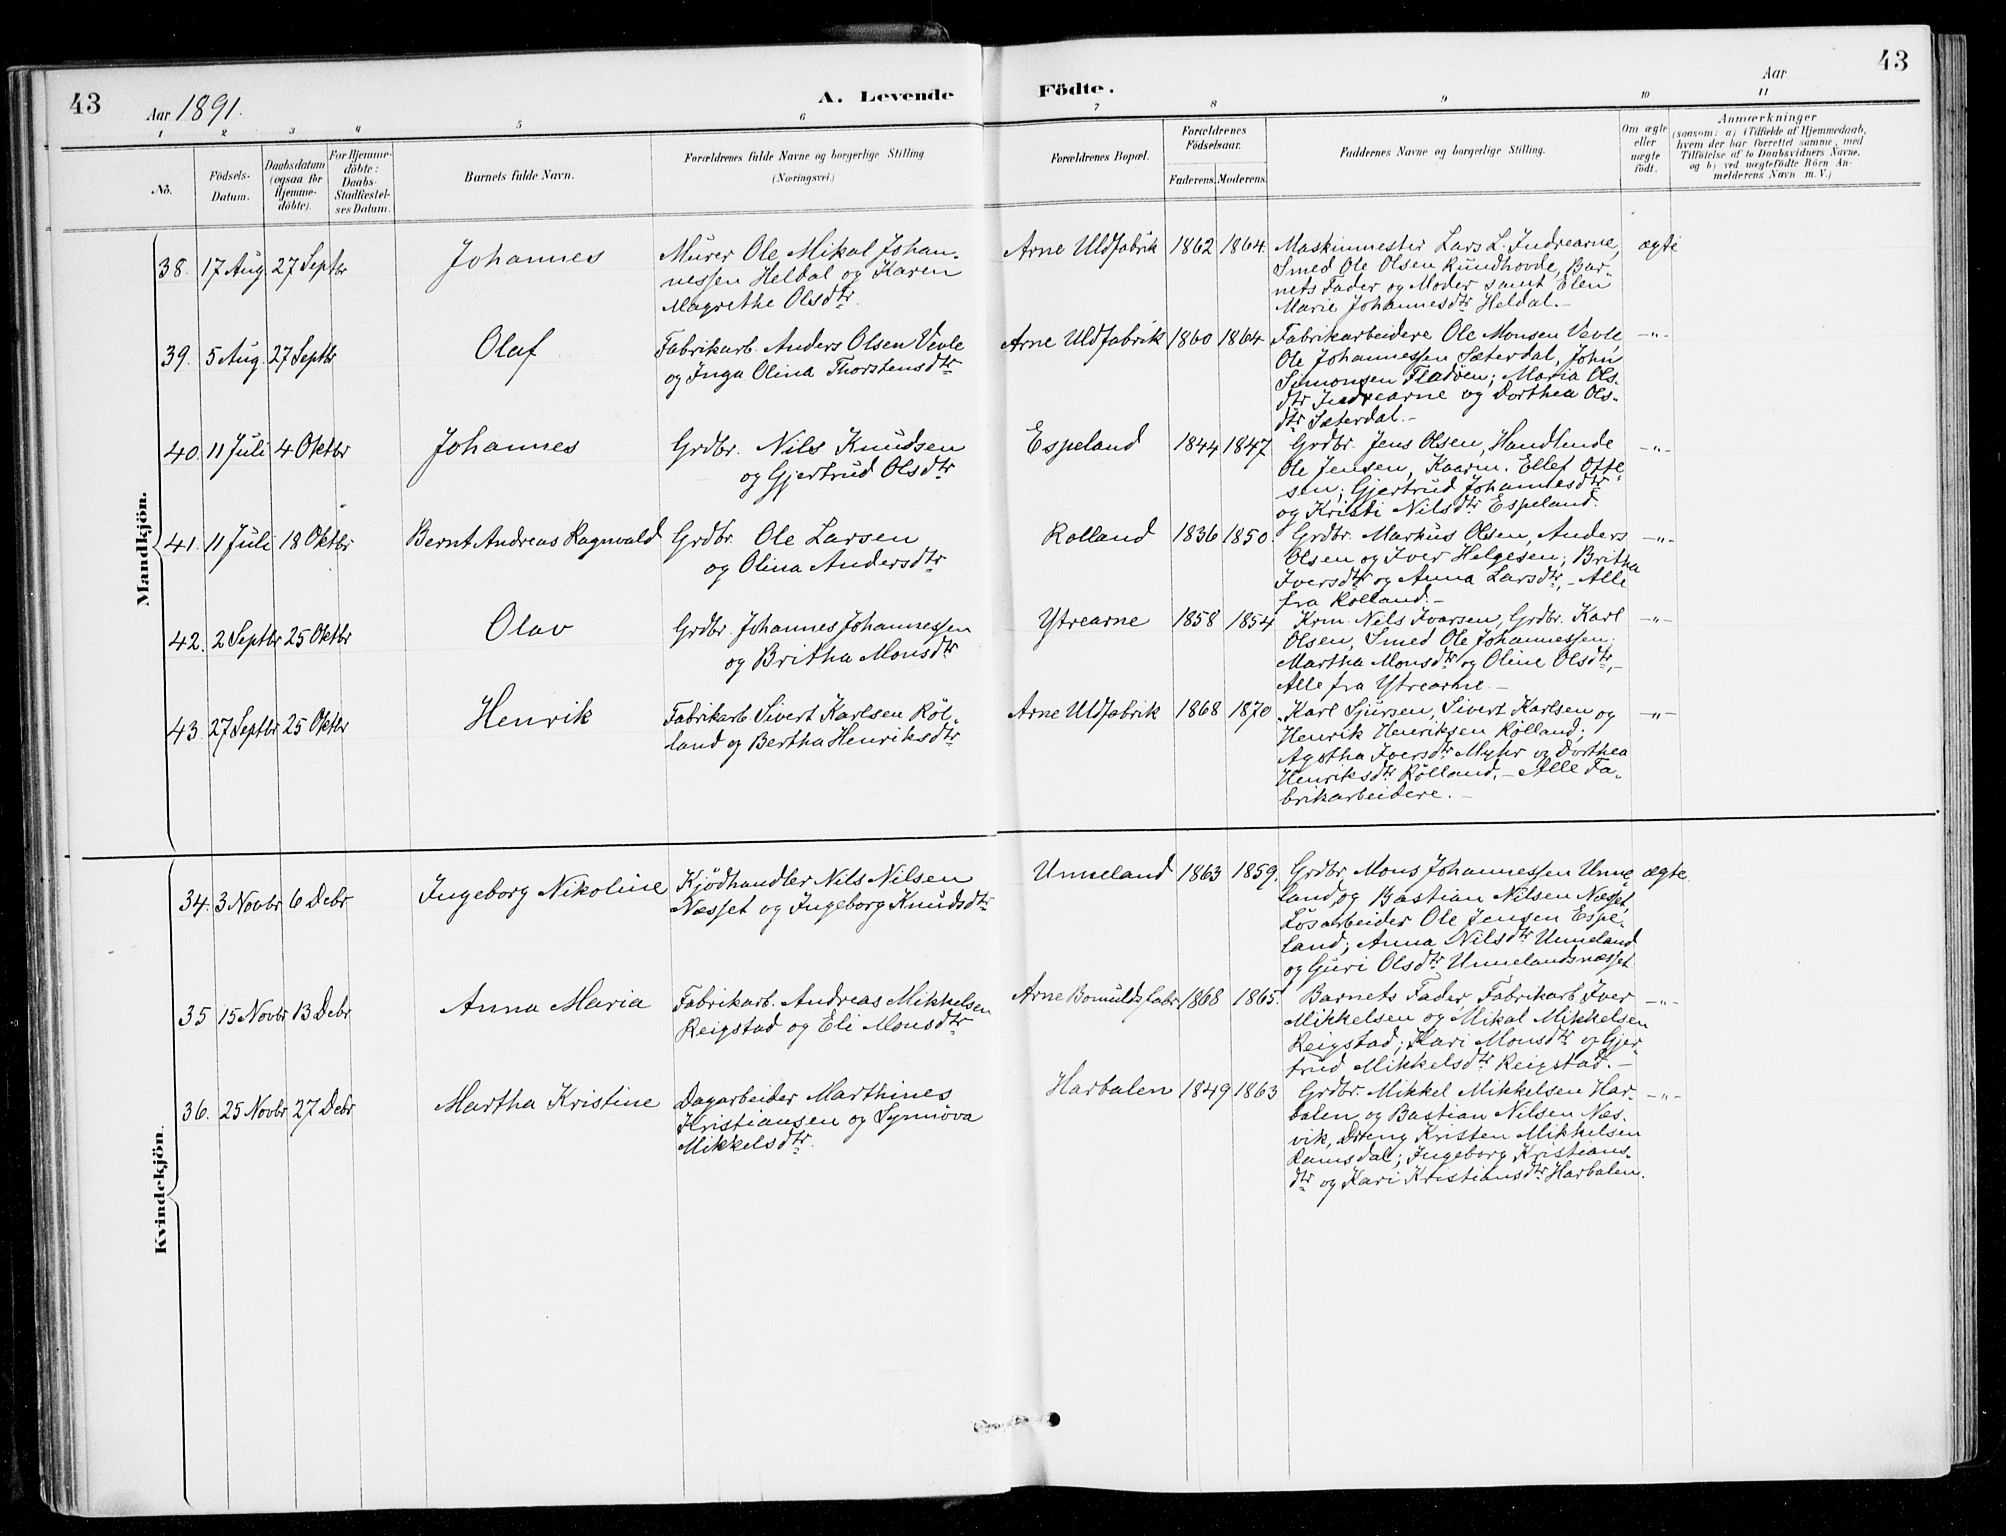 43
Aar 1891.
A. Levende
Födte.
Aar
43
1 2 3 4 5 6 7 8 9 10 11
No.
Födsels-
Datum.
Daabsdatum
(ogsaa for
Hjemme-
döbte).
For Hjemme-
döbte:
Daabs-
Stadfæstel-
ses Datum.
Barnets fulde Navn.
Forældrenes fulde Navne og borgerlige Stilling
(Næringsvei.)
Forældrenes Bopæl.
Forældrenes
Födselsaar.
Faderens. Moderens.
Faddernes Navne og borgerlige Stilling.
Om ægte
eller
uægte
födt.
Anmærkninger
(saasom: a) i Tilfælde af Hjemmedaab,
hvem der har forrettet samme, med
Tilföielse af to Daabsvidners Navne,
og b) ved uægtefödte Börn An-
melderens Navn m. V.)
Mandkjön.
38. 17 Aug 27 Septbr Johannes
Murer Ole Mikal Johan-
nessen Heldal og Karen
Magrethe Olsdtr.
Arne Uldfabrik 1862 1864.
Maskinmester Lars L. Indrearne,
Smed Ole Olsen Rundhovde, Bar-
nets Fader og Moder samt Elen
Marie Johannesdtr Heldal.-
ægte
39. 5 Aug. 27 Septbr Olaf
Fabrikarb. Anders Olsen Vevle
og Inga Olina Thorstensdtr
Arne Uldfabrik 1860 1864
Fabrikarbeidere Ole Monsen Vevle,
Ole Johannessen Sæterdal, John
Simonsen Fladven; Maria Ols-
dtr Indrearne og Dorthea Ols-
dtr Sæterdal.-
-"-
40. 11 Juli 4 Oktbr Johannes
Grdbr. Nils Knudsen
og Gjertrud Olsdtr
Espeland 1844 1847
Grdbr. Jens Olsen, Handlende
Ole Jensen, Kaarm. Ellef Otte-
sen; Gjertrud Johannesdtr
og Kristi Nilsdtr Espeland.
-"-
41. 11 Juli 18 Oktbr Bernt Andreas Ragnvald
Grdbr. Ole Larsen
og Olina Andersdtr
Rolland 1836 1850.
Grdbr. Markus Olsen, Anders
Olsen og Iver Helgesen; Britha
Iversdtr og Anna Larsdtr,- Alle
fra Rolland.-
-"-
42. 2 Septbr 25 Oktbr Olav
Grdbr. Johannes Johannessen
og Britha Monsdtr
Ytrearne 1858 1854
Krm. Nils Ivarsen, Grdbr. Karl
Olsen, Smed Ole Johannessen;
Martha Monsdtr og Oline Olsdtr,-
Alle fra Ytrearne.-
-"-
43. 27 Septbr 25 Oktbr Henrik
Fabrikarb. Sivert Karlsen Röl-
land og Bertha Henriksdtr
Arne Uldfabrik 1868 1870
Karl Sjursen, Sivert Karlsen og
Henrik Henriksen Rölland;
Agatha Iversdtr Myhr og Dorthea
Henriksdtr Rölland.- Alle Fa-
brikarbeidere.-
-"-
Kvindekjön.
34. 3 Novbr 6 Debr Ingeborg Nikoline
Kjödhandler Nils Nilsen
Næsset og Ingeborg Knudsdtr
Unneland 1863 1859.
Grdbr. Mons Johannessen Unne-
land, og Bastian Nilsen Næsset,
Lösarbeider Ole Jensen Espe-
land; Anna Nilsdtr Unneland
og Guri Olsdtr Unnelandsnæsset
ægte.
35 15 Novbr 13 Debr Anna Maria
Fabrikarb. Andreas Mikkelsen
Reigstad og Eli Monsdtr
Arne Bomuldsfabr 1868 1865.
Barnets Fader, Fabrikarb. Iver
Mikkelsen og Mikal Mikkelsen
Reigstad; Kari Monsdtr og Gjer-
trud Mikkelsdtr Reigstad.-
-"-
36. 25 Novbr 27 Debr Martha Kristine
Dagarbeider Marthines
Kristiansen og Synnöva
Mikkelsdtr.
Harbalen 1849 1863
Grdbr. Mikkel Mikkelsen Har-
balen, og Bastian Nilsen Næs-
vik, Dreng Kristen Mikkelsen
Ramsdal; Ingeborg Kristians-
dtr og Kari Kristiansdtr Harbalen.
-"-